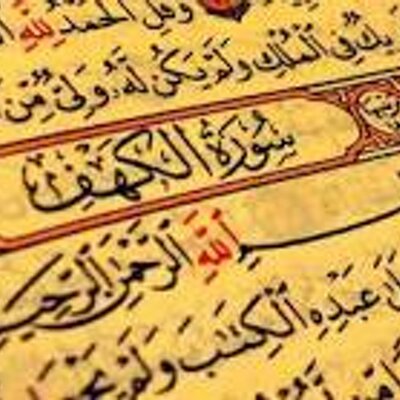 وَقُلِ الْحَمْدُ لِلَّهِ
يكٌ فِي الْمُلْكِ وَلَمْ يَكُن لَّهُ وَلِيٌّ مِّنَ
سُورَةُ الْكَهْفِ
اللَّهِ الرَّحْمَٰنِ الرَّحِيمِ
عَبْدِهِ الْكِتَٰبَ وَلَمْ يَجْعَل